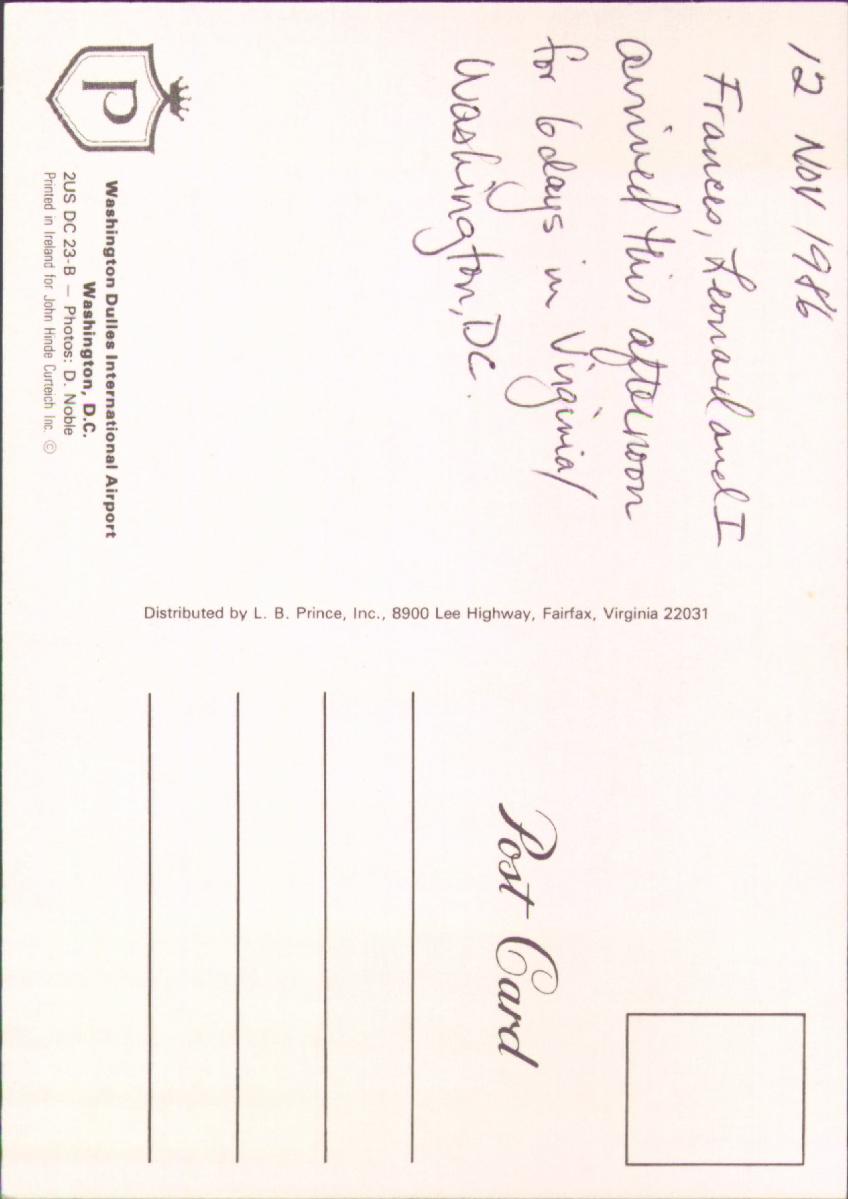 12 NOV 1986
Frances, Leonard and I
arrived this afternoon
for 6 days in Virginia/
Washington, DC.
P
Washington Dulles International Airport
Washington, D.C.
2US DC 23-B — Photos: D. Noble
Printed in Ireland for John Hinde Curteich Inc. ©
Distributed by L. B. Prince, Inc., 8900 Lee Highway, Fairfax, Virginia 22031
Post Card